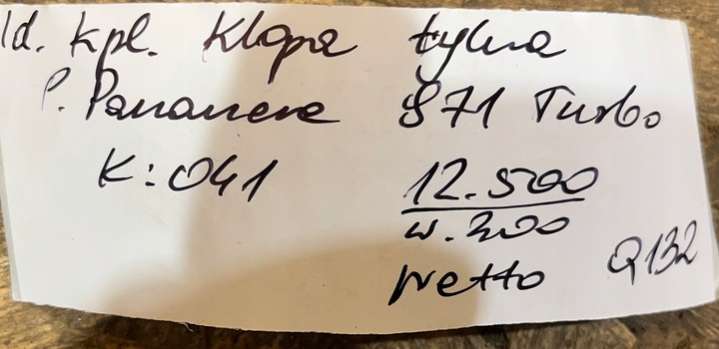 Id. kpl. Klapa tylna
P. Panamera 971 Turbo
K: 041 12.500
netto Q132